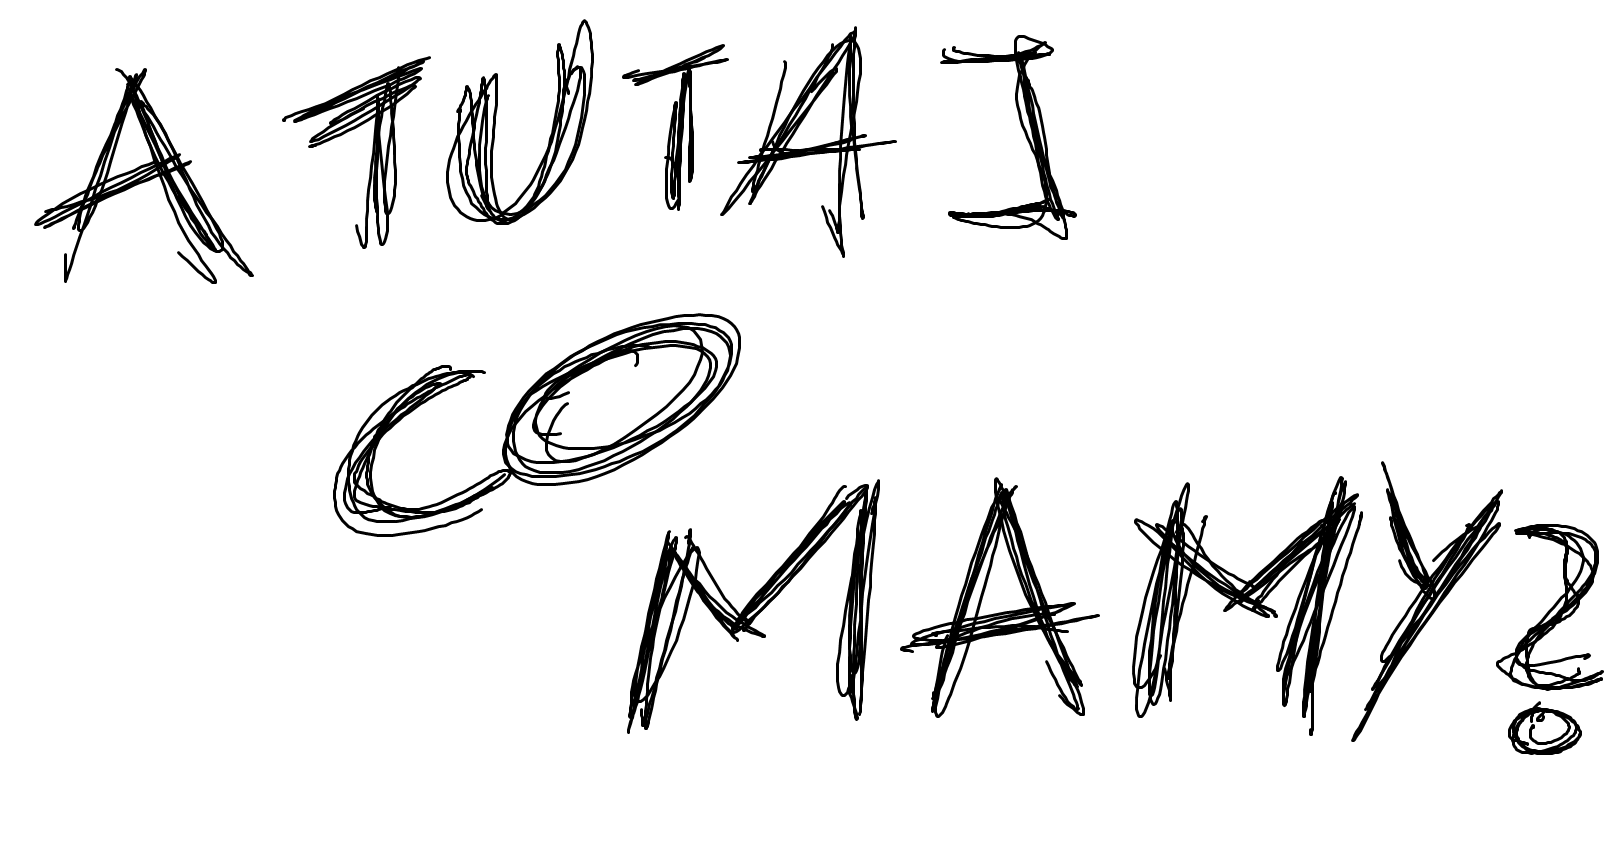 A TUTAJ
CO
MAMY?